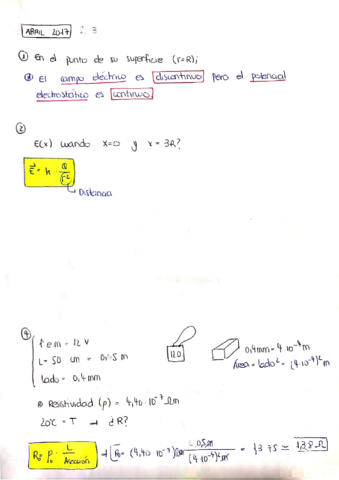 ABRIL 2017 : 3
① En el punto de su superficie (r=R);
ⓐ El campo eléctrico es discontinuo pero el potencial
electrostático es continuo.
②
E(x) cuando x=0 y x = 3R?
E⃗ = k · Q / r²
Distancia
④
f e m = 12 V
L = 50 cm = 0.5 m
lado = 0,4 mm
0,4 mm = 4 · 10⁻⁴ m
Área = lado² = (4·10⁻⁴)² m
Resistividad (ρ) = 4,40 · 10⁻⁷ Ωm
20ºC = T → d R?
R = ρ · L / Asección → R = (4,40 · 10⁻⁷) Ωm · 0,5m / (4·10⁻⁴)² m² = 1375 ≈ 1,38 Ω